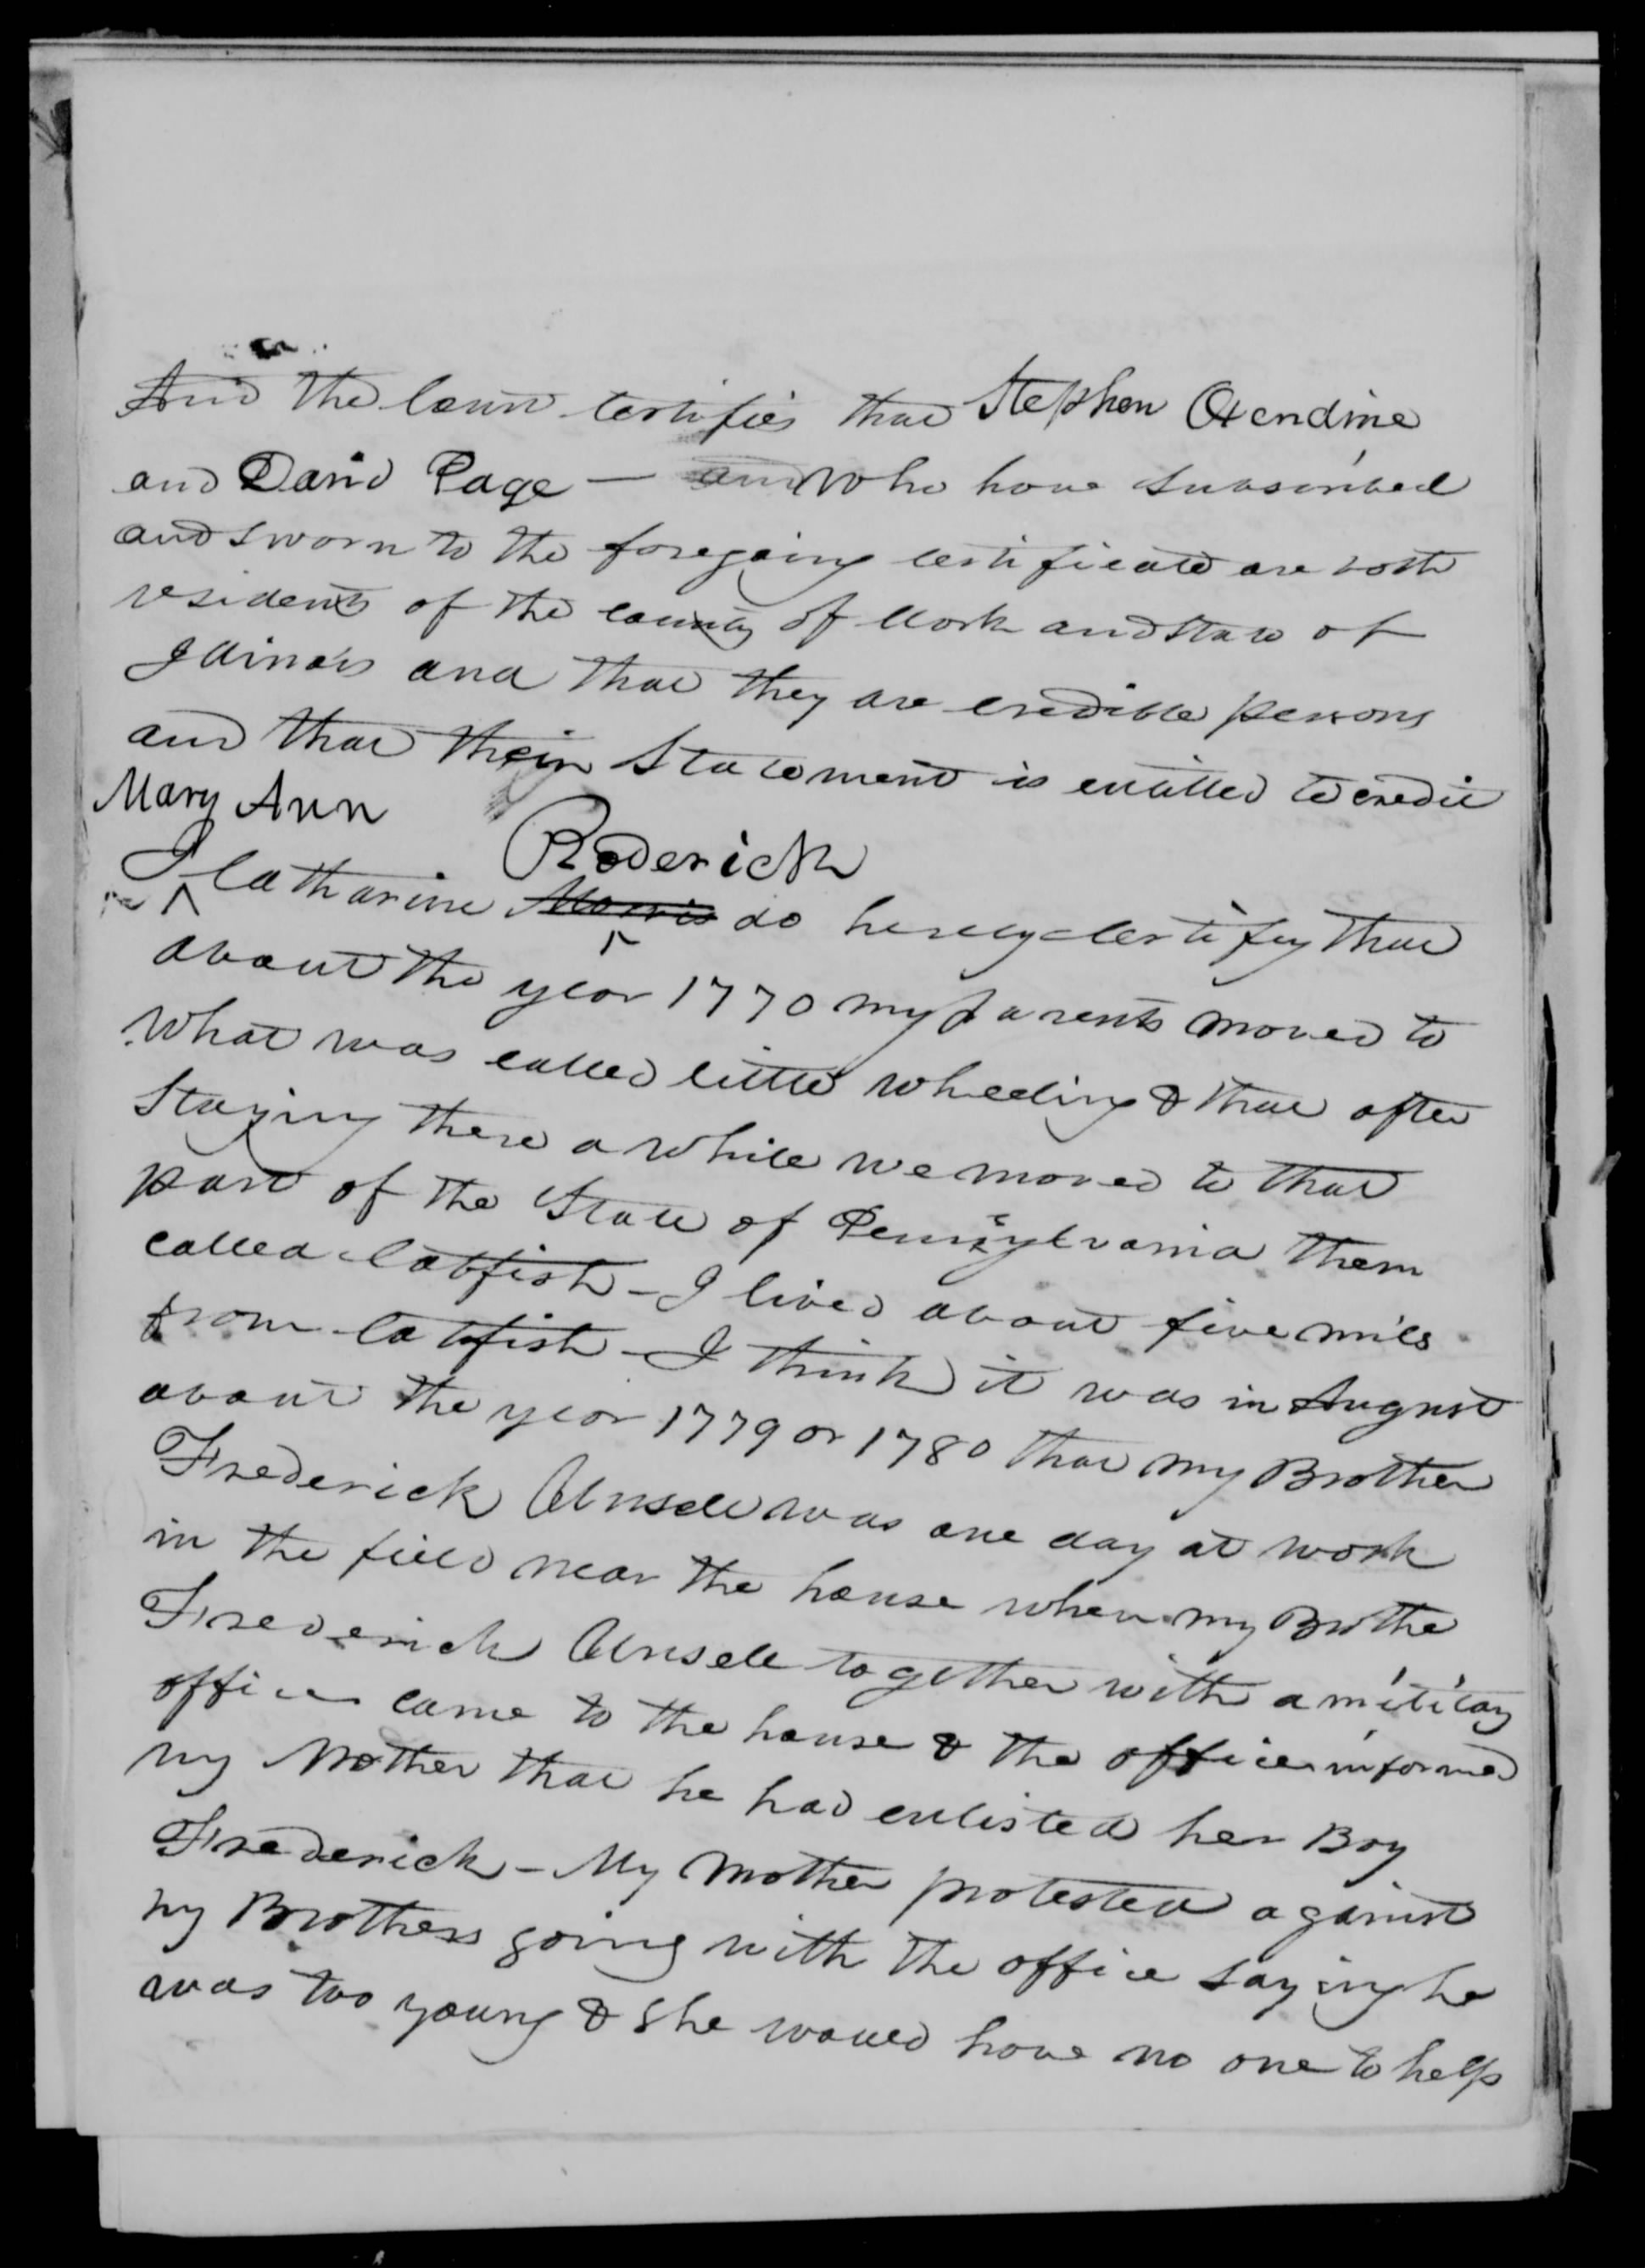 And the Court certifies that Stephen Oxendine
and David Page — and who have subscribed
and sworn to the foregoing certificate are both
residents of the county of and State of
Illinois and that they are credible persons
and that their Statement is entitled to credit
Mary Ann
Roderick
I ^ Catharine Morris do hereby certify that
about the year 1770 my parents moved to
what was called little wheeling & that after
staying there a while we moved to that
part of the State of Pennsylvania then
called Catfish - I lived about five mils
from Catfish - I think it was in August
about the year 1779 or 1780 that my Brother
Frederick Unsell was one day at work
in the field near the house when my Brothe
Frederick Unsell together with a military
officer came to the house & the officer informed
my Mother that he had enlisted her Boy
Frederick - My Mother protested against
my Brothers going with the office saying he
was too young & she would have no one to help